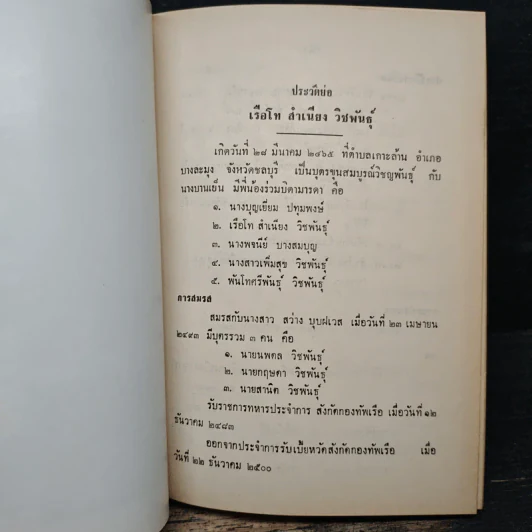 ประวัติย่อ
เรือโท สำเนียง วิชพันธุ์
เกิดวันที่ ๒๘ มีนาคม ๒๔๖๕ ที่ตำบลเกาะล้าน อำเภอ
บางละมุง จังหวัดชลบุรี เป็นบุตรขุนสมบูรณ์วิชญพันธุ์ กับ
นางบานเย็น มีพี่น้องร่วมบิดามารดา คือ
๑. นางบุญเยี่ยม ปทุมพงษ์
๒. เรือโท สำเนียง วิชพันธุ์
๓. นางพจนีย์ บางสมบุญ
๔. นางสาวเพิ่มสุข วิชพันธุ์
๕. พันโทศรีพันธุ์ วิชพันธุ์
การสมรส
สมรสกับนางสาว สว่าง บุบผเวส เมื่อวันที่ ๒๓ เมษายน
๒๔๙๓ มีบุตรรวม ๓ คน คือ
๑. นายนพดล วิชพันธุ์
๒. นายกฤษดา วิชพันธุ์
๓. นายสานิต วิชพันธุ์
รับราชการทหารประจำการ สังกัดกองทัพเรือ เมื่อวันที่ ๑๒
ธันวาคม ๒๔๘๓
ออกจากประจำการรับเบี้ยหวัดสังกัดกองทัพเรือ เมื่อ
วันที่ ๒๒ ธันวาคม ๒๕๐๐